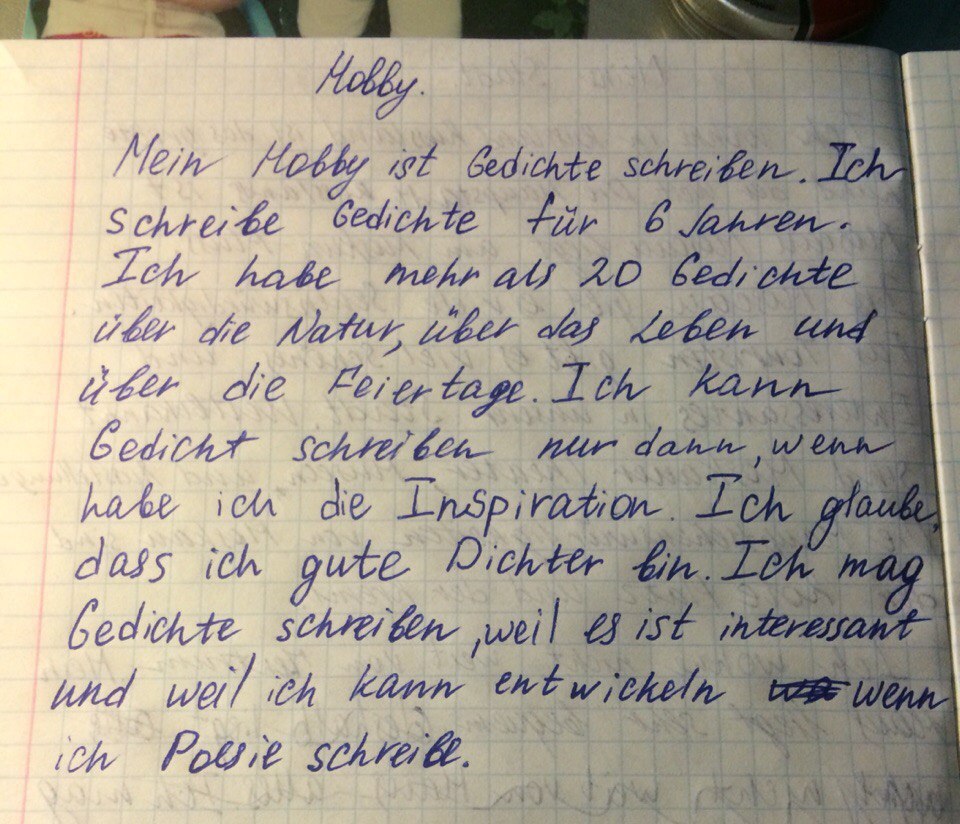 Hobby.
Mein Hobby ist Gedichte schreiben. Ich
schreibe Gedichte für 6 Jahren.
Ich habe mehr als 20 Gedichte
über die Natur, über das Leben und
über die Feiertage. Ich kann
Gedicht schreiben nur dann, wenn
habe ich die Inspiration. Ich glaube,
dass ich gute Dichter bin. Ich mag
Gedichte schreiben, weil es ist interessant
und weil ich kann entwickeln wenn
ich Poesie schreibe.